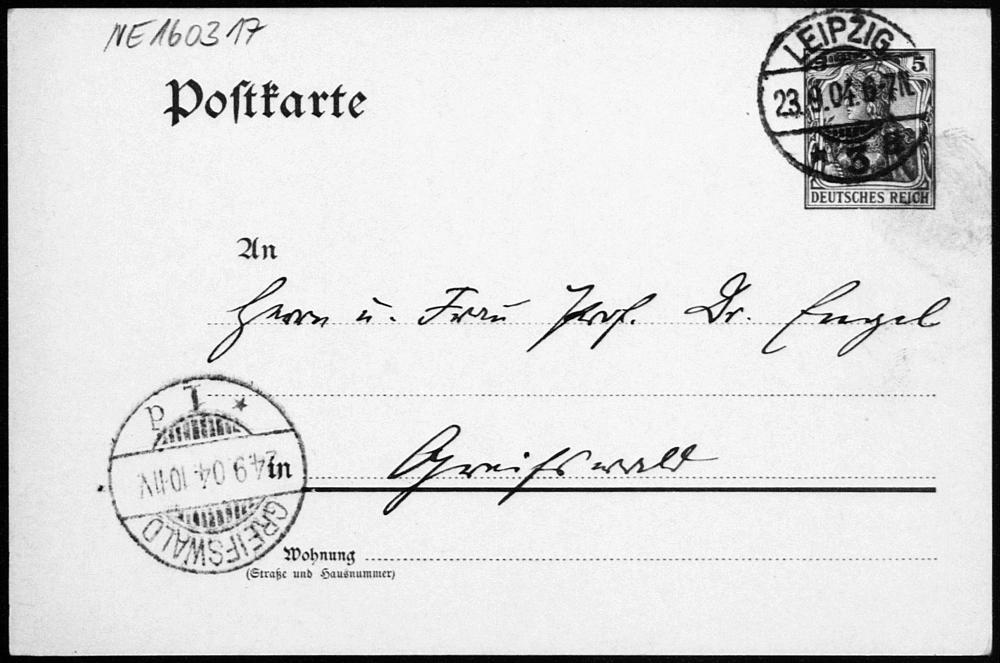 NE160317
Postkarte
LEIPZIG
23.9.04. 6-7N.
* 3 B
5 5
DEUTSCHES REICH
An
Herrn u. Frau Prof. Dr. Engel
Greifswald
in
GREIFSWALD
24.9.04. 10-11V.
* 1 d
Wohnung
(Straße und Hausnummer)